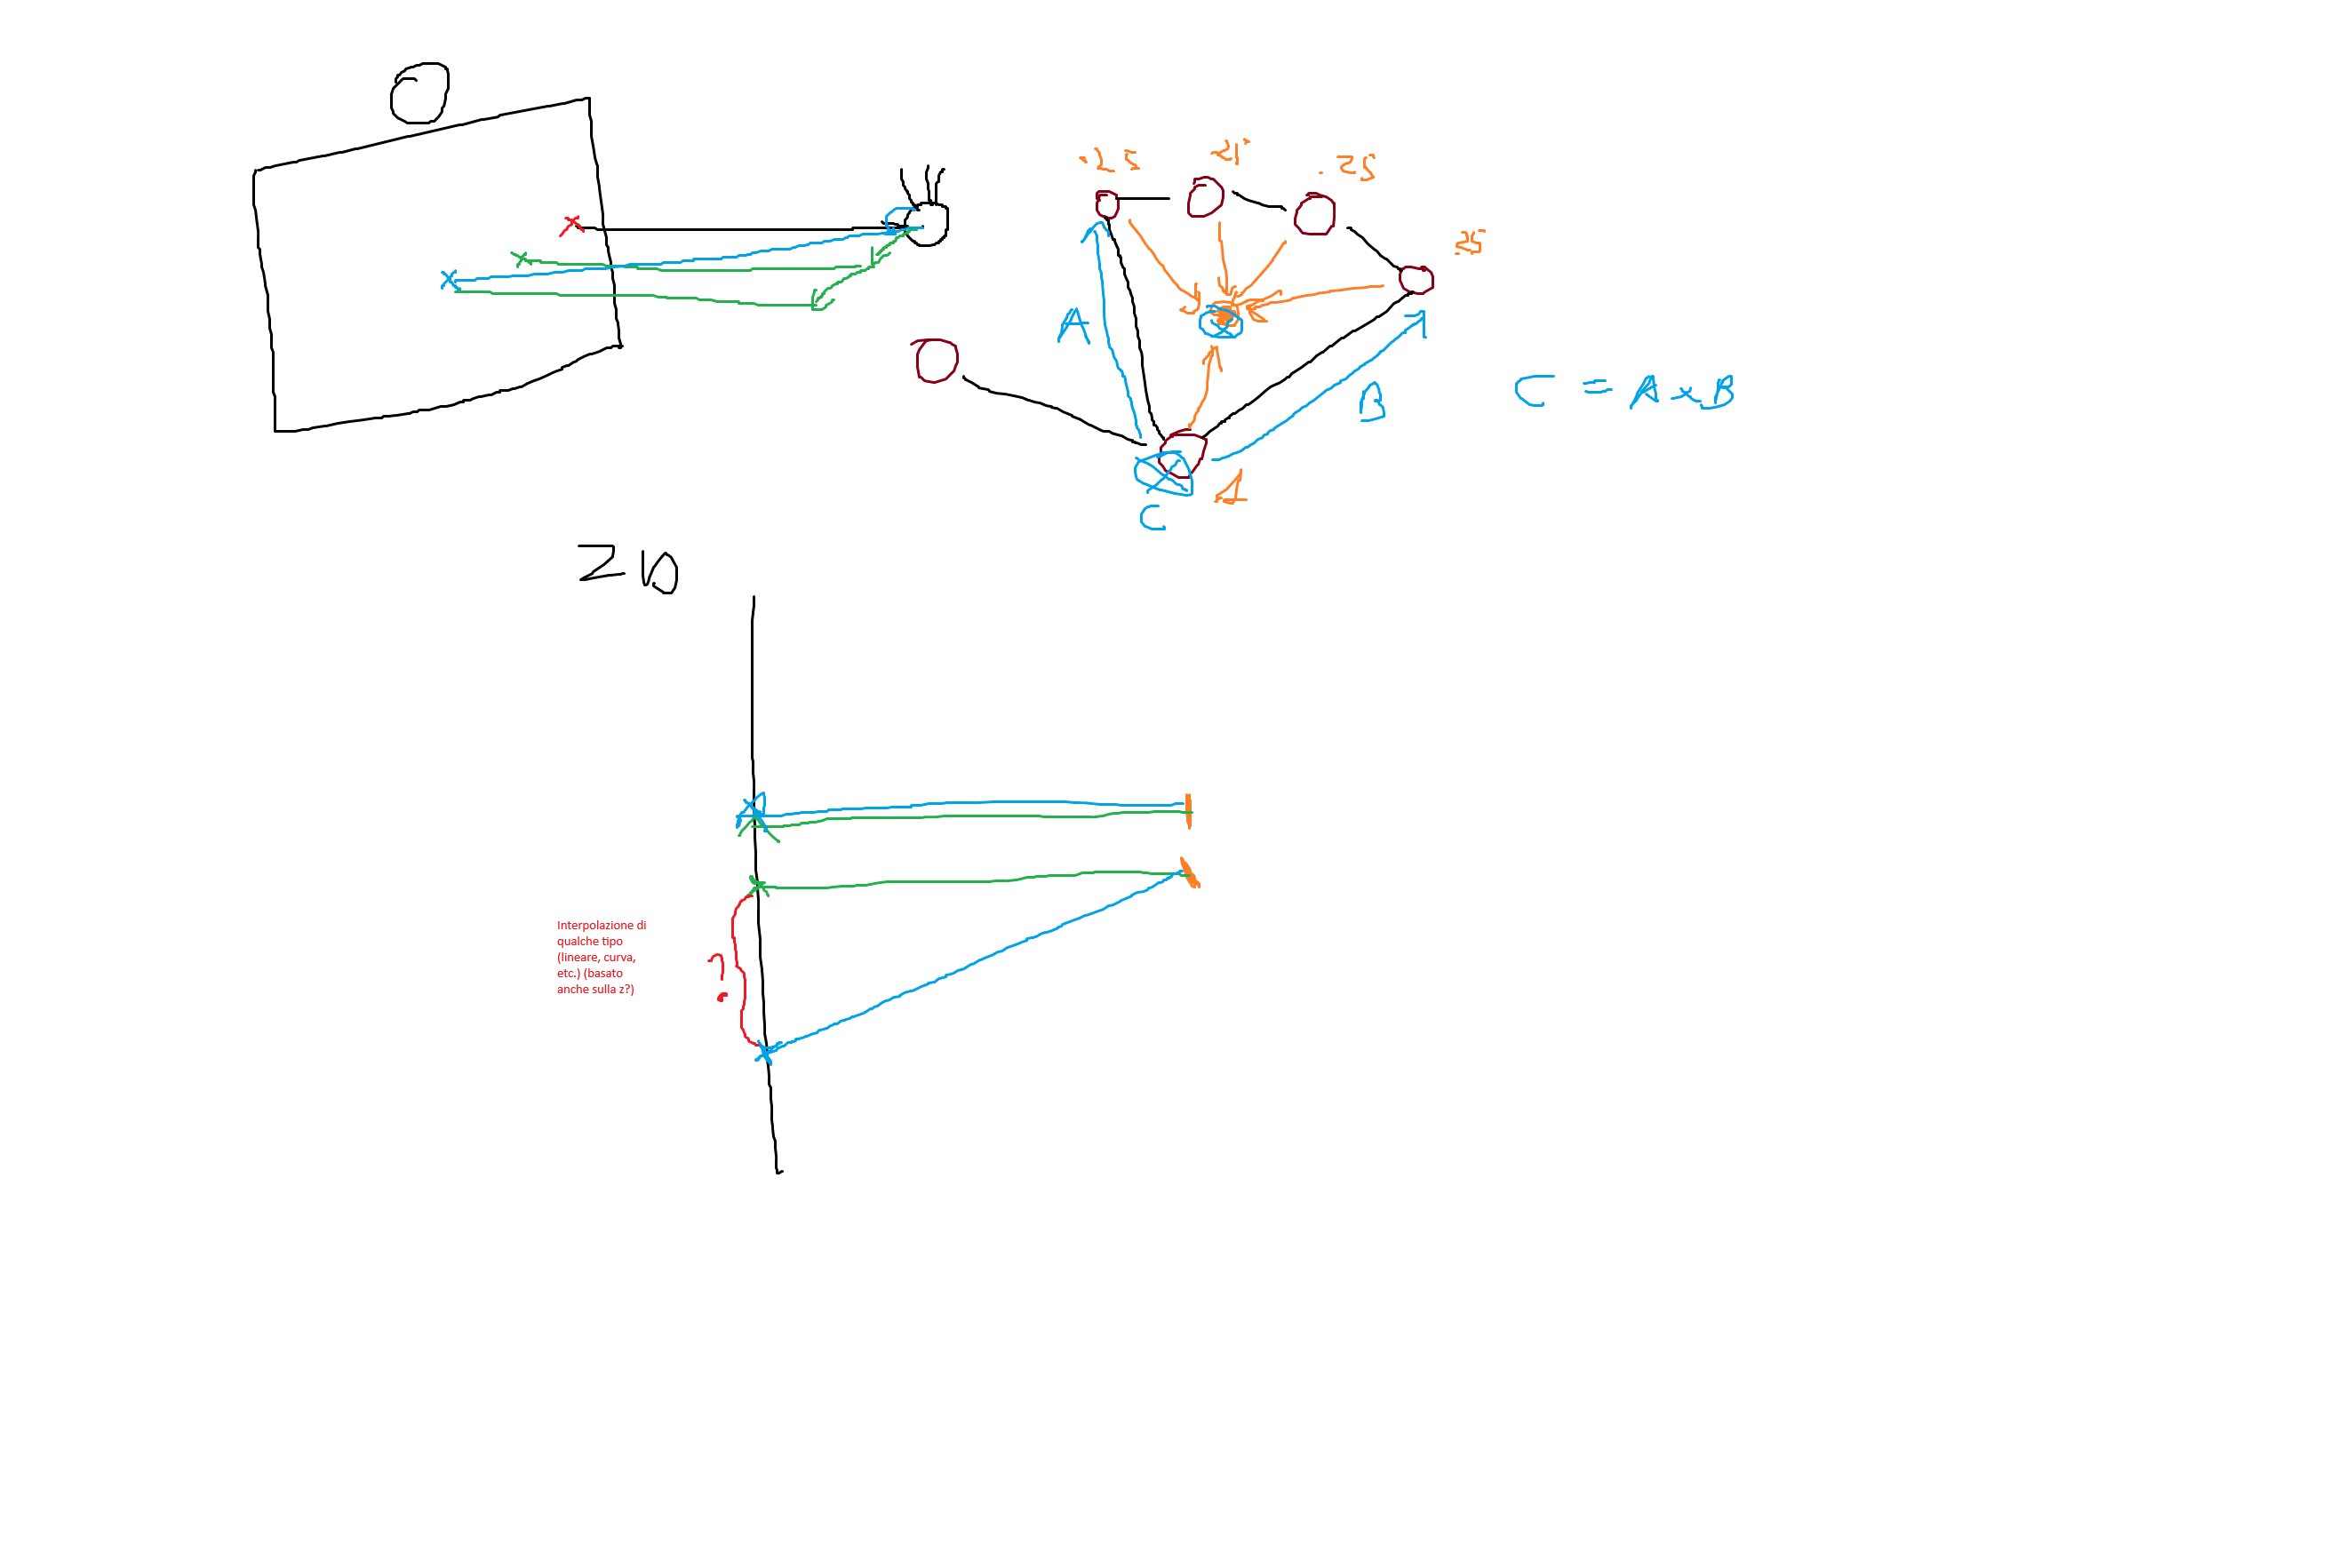 .25
.25
.25
.25
A
B
C = A x B
1
C
2D
Interpolazione di
qualche tipo
(lineare, curva,
etc.) (basato
anche sulla z?)
?